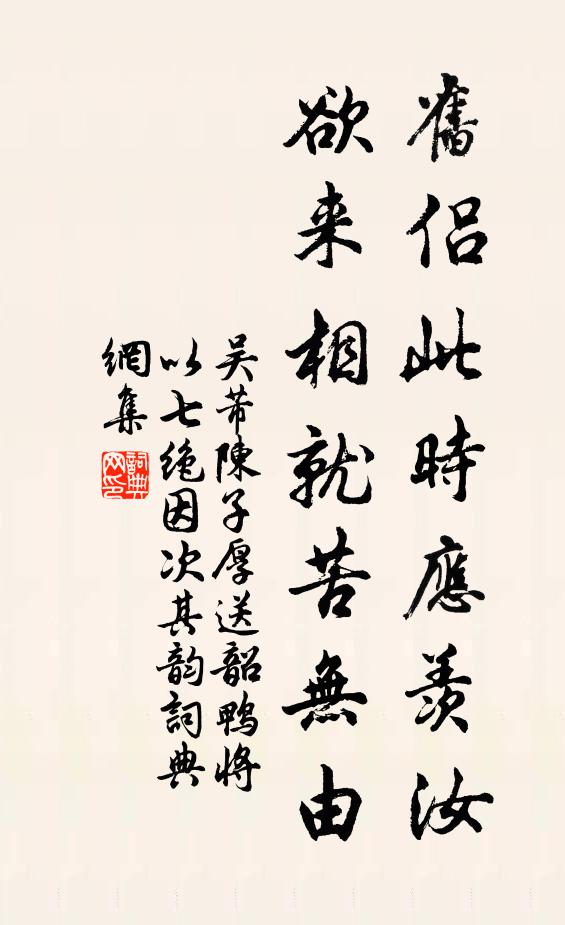 舊侶此時應羨汝
欲来相就苦無由
吴芾陳子厚送韶鴨將
以七绝因次其韵詞典
網集
詞典网印